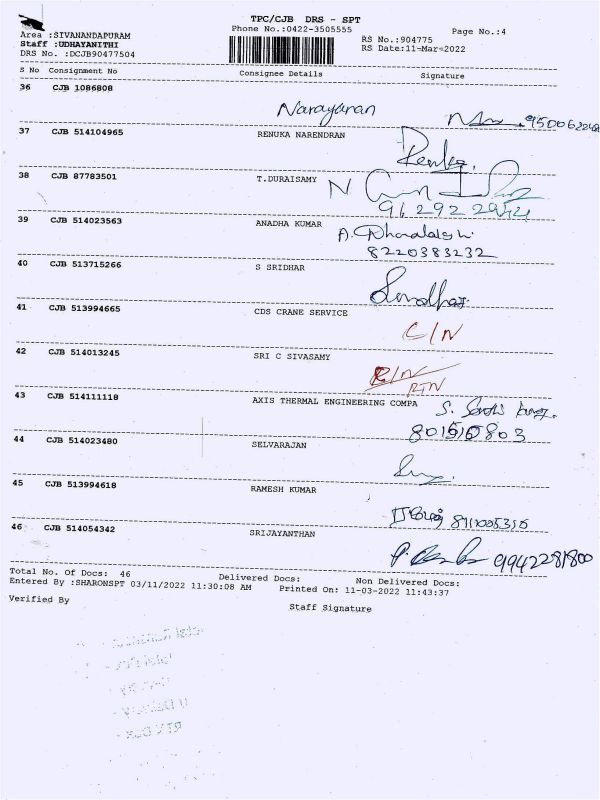 TPC/CJB DRS - SPT
Phone No.:0422-3505555
Page No.:4
Area :SIVANANDAPURAM
Staff :UDHAYANITHI
DRS No. :DCJB90477504
RS No.:904775
RS Date:11-Mar-2022
S No Consignment No Consignee Details Signature
36 CJB 1086808
Narayanan
37 CJB 514104965 RENUKA NARENDRAN
Renuka.
38 CJB 87783501 T.DURAISAMY
39 CJB 514023563 ANADHA KUMAR
8220383232
40 CJB 513715266 S SRIDHAR
41 CJB 513994665 CDS CRANE SERVICE
C/N
42 CJB 514013245 SRI C SIVASAMY
RTN
43 CJB 514111118 AXIS THERMAL ENGINEERING COMPA
44 CJB 514023480 SELVARAJAN
45 CJB 513994618 RAMESH KUMAR
46 CJB 514054342 SRIJAYANTHAN
9942281800
Total No. Of Docs: 46 Delivered Docs: Non Delivered Docs:
Entered By :SHARONSPT 03/11/2022 11:30:08 AM Printed On: 11-03-2022 11:43:37
Verified By Staff Signature